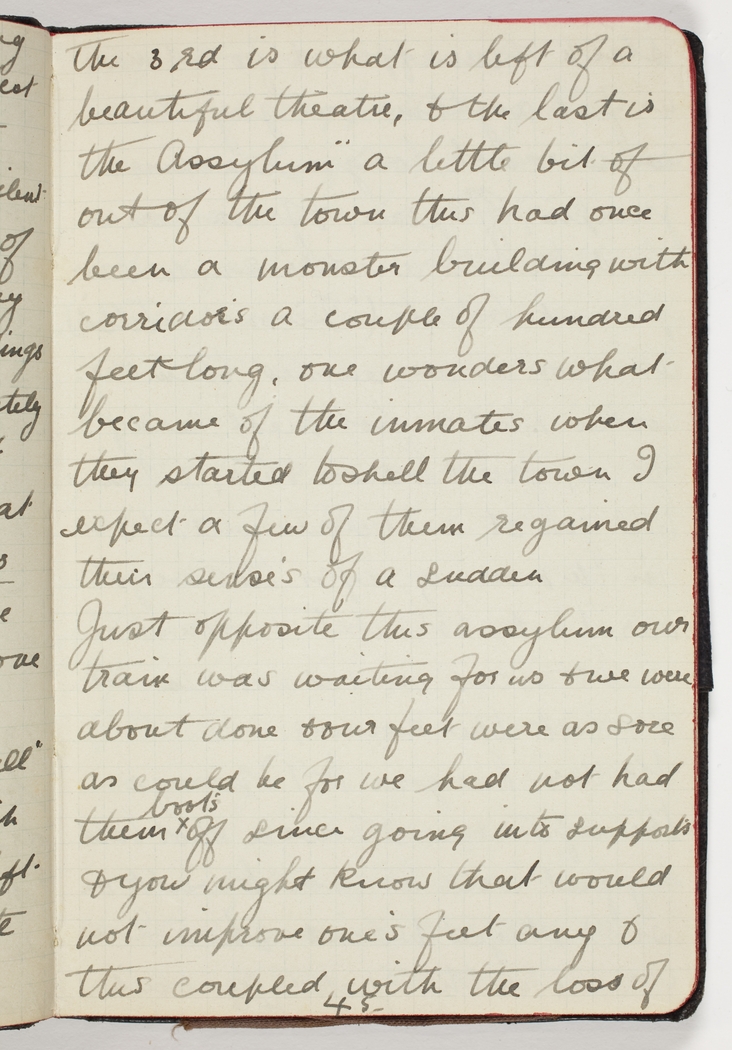 the 3rd is what is left of a
beautiful theatre, & the last is
the Assylum" a little bit of
out of the town this had once
been a monster building with
corridors a couple of hundred
feet long, one wonders what
became of the inmates when
they started to shell the town I
expect a few of them regained
their sense's of a sudden
Just opposite this assylum our
train was waiting for us & we were
about done & our feet were as sore
as could be for we had not had
boots
them x off since going into supports
& you might know that would
not improve one's feet any &
this coupled with the loss of
45